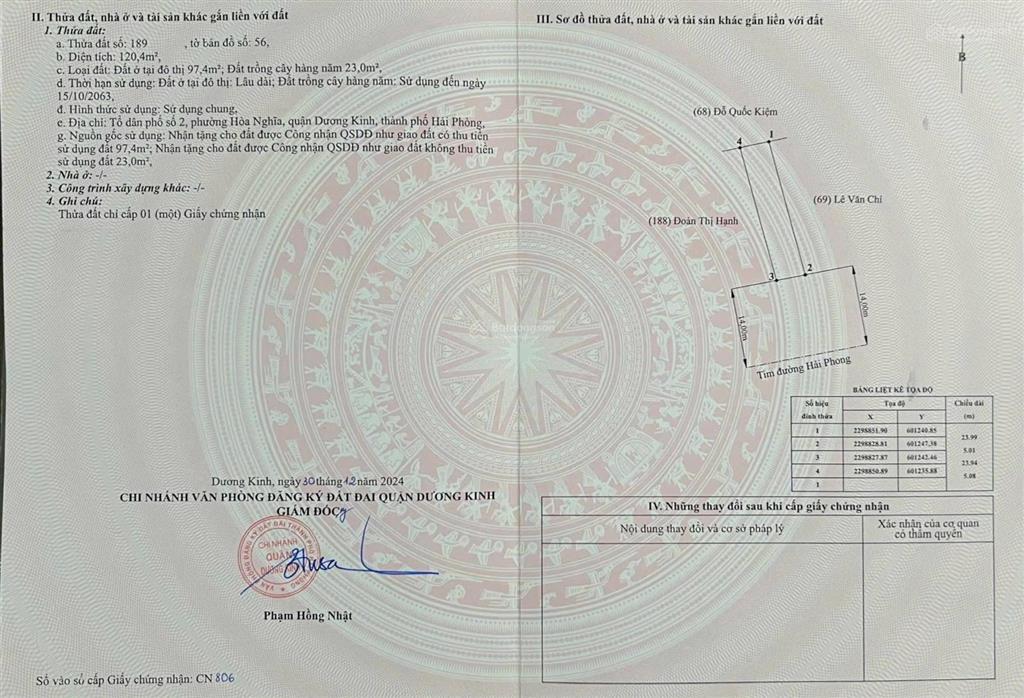 II. Thửa đất, nhà ở và tài sản khác gắn liền với đất
1. Thửa đất:
a. Thửa đất số: 189 , tờ bản đồ số: 56,
b. Diện tích: 120,4m²,
c. Loại đất: Đất ở tại đô thị 97,4m²; Đất trồng cây hàng năm 23,0m²,
d. Thời hạn sử dụng: Đất ở tại đô thị: Lâu dài; Đất trồng cây hàng năm: Sử dụng đến ngày
15/10/2063,
đ. Hình thức sử dụng: Sử dụng chung,
e. Địa chỉ: Tổ dân phố số 2, phường Hòa Nghĩa, quận Dương Kinh, thành phố Hải Phòng,
g. Nguồn gốc sử dụng: Nhận tặng cho đất được Công nhận QSDĐ như giao đất có thu tiền
sử dụng đất 97,4m²; Nhận tặng cho đất được Công nhận QSDĐ như giao đất không thu tiền
sử dụng đất 23,0m²,
2. Nhà ở: -/-
3. Công trình xây dựng khác: -/-
4. Ghi chú:
Thửa đất chỉ cấp 01 (một) Giấy chứng nhận
Dương Kinh, ngày 30 tháng 12 năm 2024
CHI NHÁNH VĂN PHÒNG ĐĂNG KÝ ĐẤT ĐAI QUẬN DƯƠNG KINH
GIÁM ĐỐC
CHI NHÁNH
QUẬN
DƯƠNG KINH
Phạm Hồng Nhật
Số vào sổ cấp Giấy chứng nhận: CN 806
III. Sơ đồ thửa đất, nhà ở và tài sản khác gắn liền với đất
B
(68) Đỗ Quốc Kiệm
4 1
(69) Lê Văn Chi
(188) Đoàn Thị Hạnh
3 2
14,00m
14,00m
Tim đường Hải Phong
Batdongsan
BẢNG LIỆT KÊ TỌA ĐỘ
Số hiệu đỉnh thửa Tọa độ Chiều dài (m)
X Y
1 2298851.90 601240.85
23.99
2 2298828.81 601247.38
5.01
3 2298827.87 601242.46
23.94
4 2298850.89 601235.88
5.08
1
IV. Những thay đổi sau khi cấp giấy chứng nhận
Nội dung thay đổi và cơ sở pháp lý
Xác nhận của cơ quan
có thẩm quyền